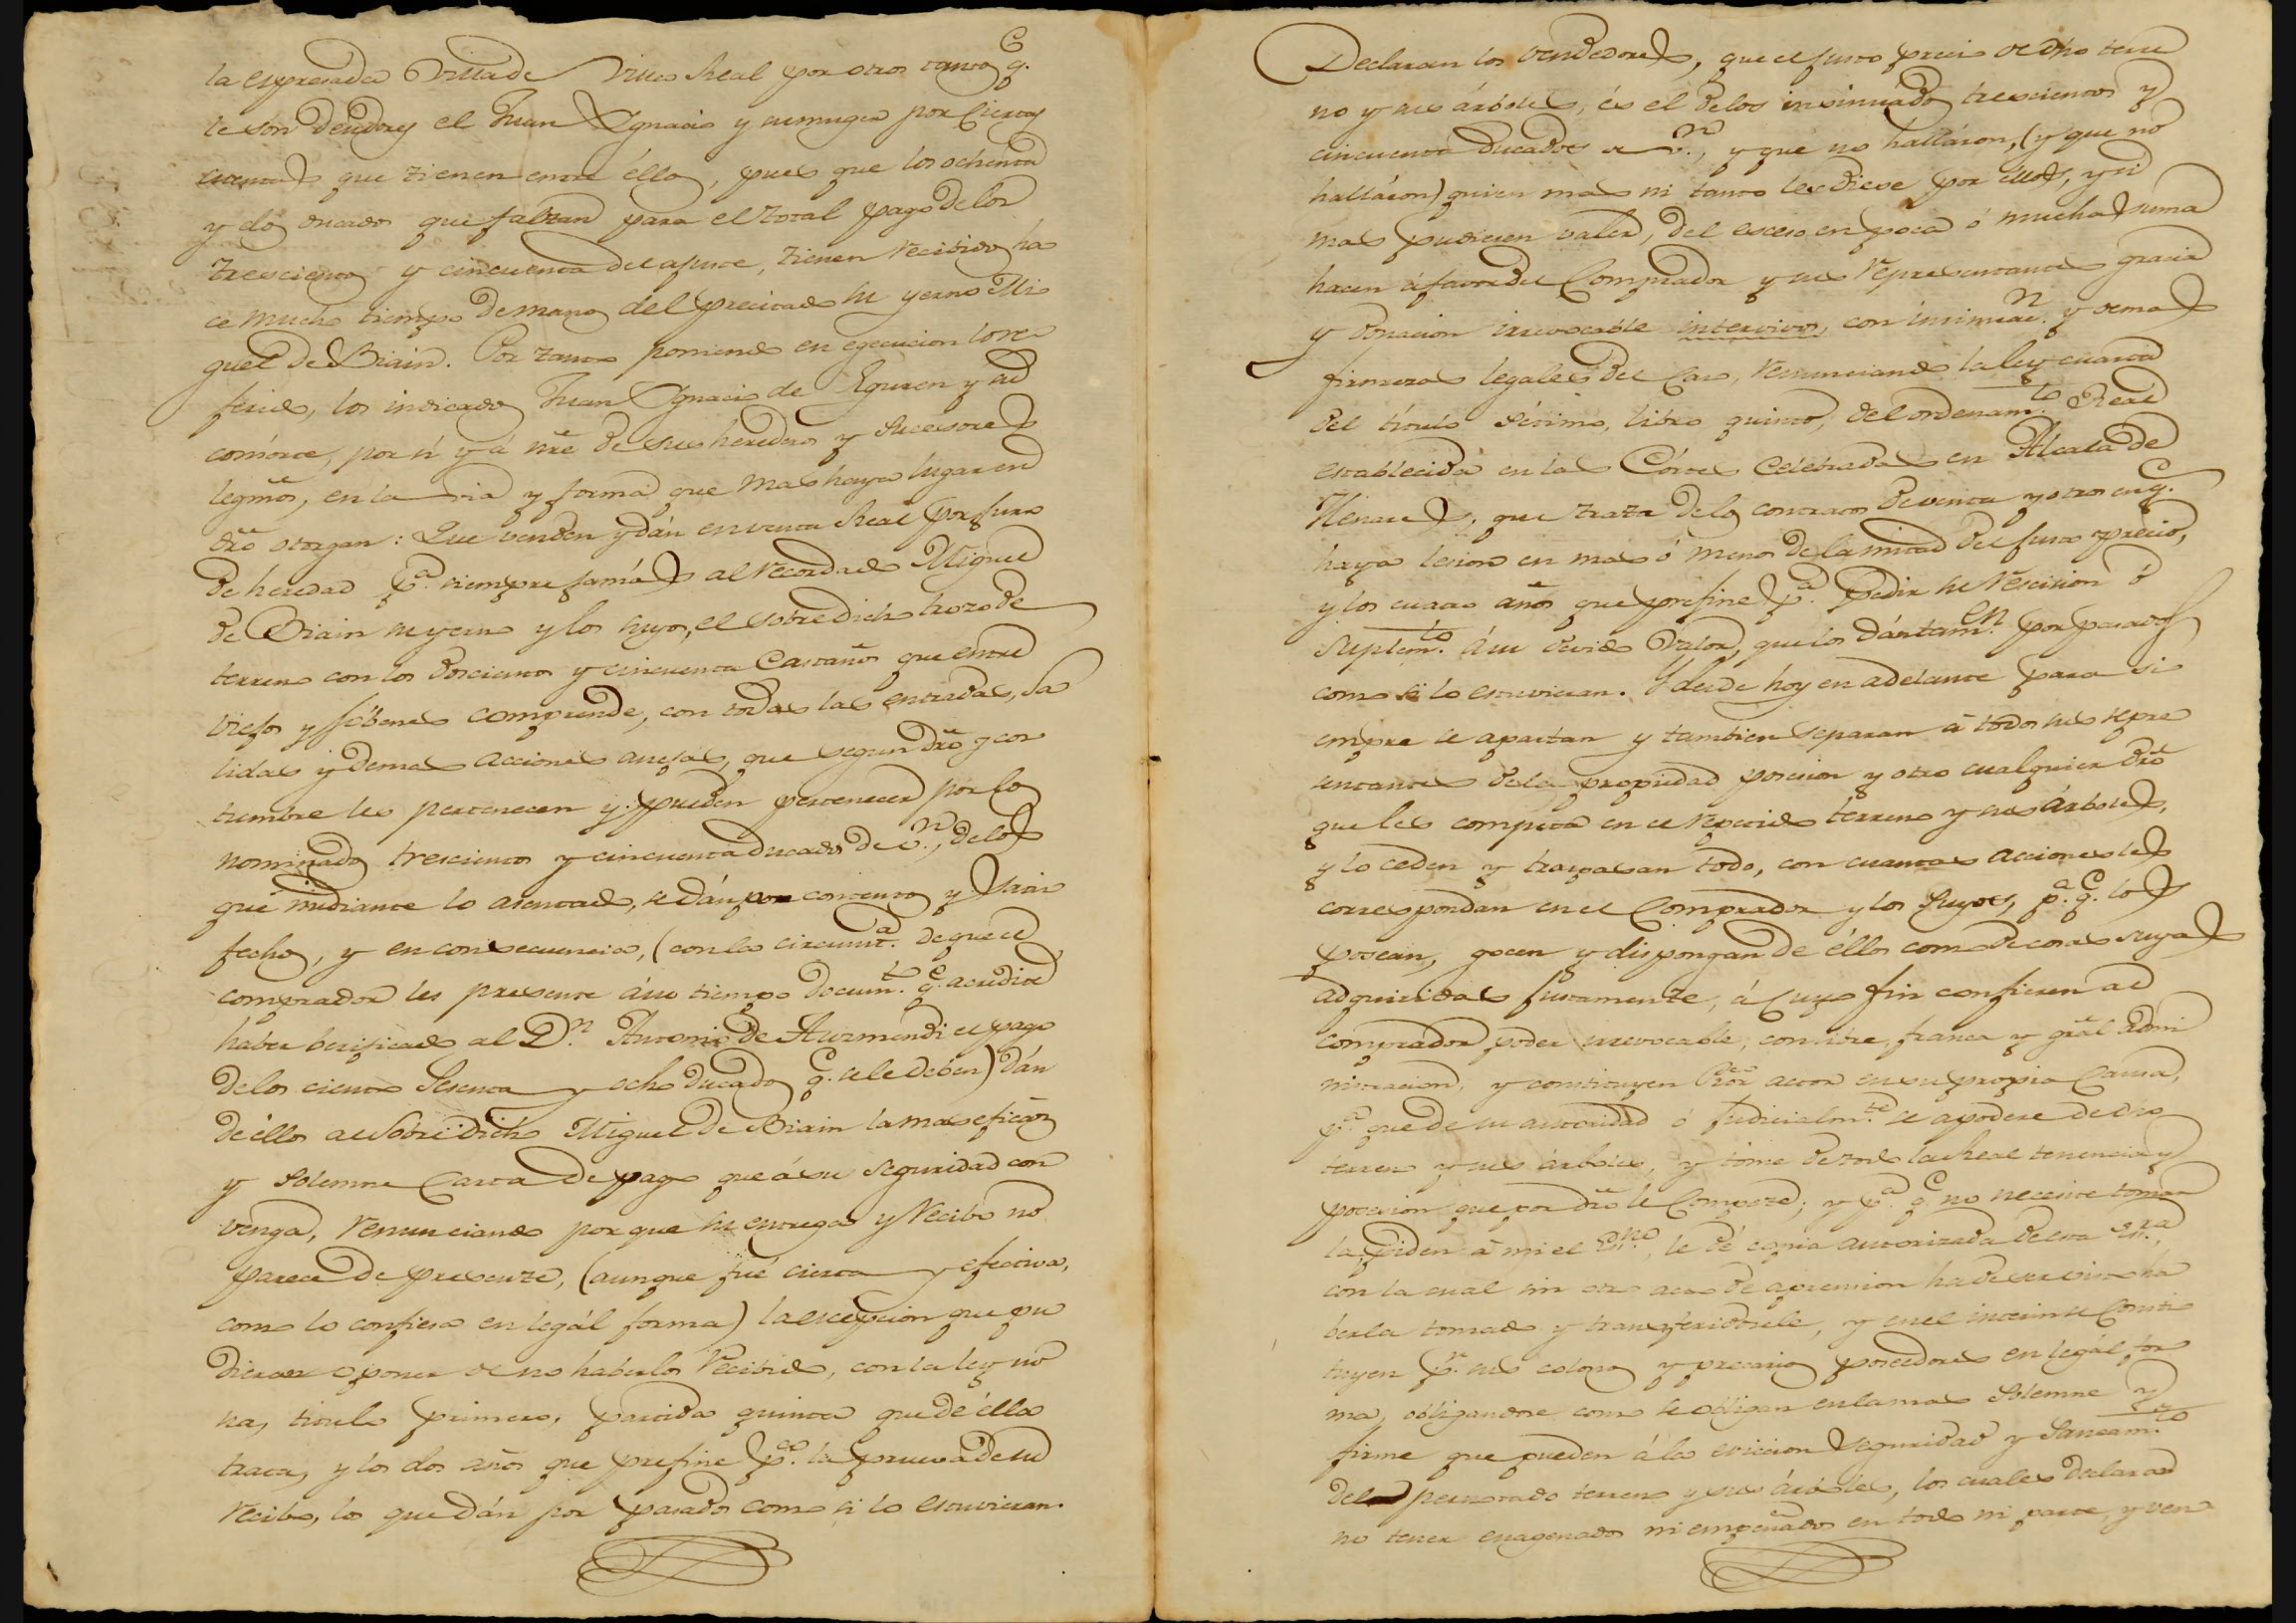 la espresada Villa de Villa Real por otros tantos q.e
le son deudores el Juan Ygnacio y su muger por ciertas
cuentas que tienen entre éllos, pues que los ochenta
y dos ducados que faltan para el total pago de los
trescientos y cincuenta del ajuste, tienen recibidos ha
ce mucho tiempo de manos del precitado su yerno Mi
guel de Biain. Por tanto poniendo en egecucion lo re
ferido, los indicados Juan Ygnacio de Eguren y su
consorte, por sí y á nr̃e de sus herederos y sucesores
legm̃os, en la via y forma que mas haya lugar en
dr̃o otorgan: Que venden y dán en venta Real por juro
de heredad p.a siempre jamás al recordado Miguel
de Biain su yerno y los suyos, el sobredicho trozo de
terreno con los doscientos y cincuenta Castaños que entre
viejos y jóbenes comprende, con todas las entradas, sa
lidas y demas acciones anejas, que segun dr̃o y cos
tumbre les pertenecen y pueden pertenecer por los
nominados trescientos y cincuenta ducados de v.n, de los
que mediante lo asentado, se dán por contentos y satis
fechos, y en consecuencia, (con la circunst.a de que el
comprador les presente á su tiempo docum.to q.e acredite
haber berificado al D.n Antonio de Aurmendi el pago
de los ciento sesenta y ocho ducados q.e se le deben) dán
de éllos al sobredicho Miguel de Biain la mas eficáz
y solemne Carta de pago que á su seguridad con
venga, renunciando por que su entrega y recibo no
parece de presente, (aunque fué cierta y efectiva,
como lo confiesa en legál forma) la escepcion que pu
dieran oponer de no haberlos recibido, con la ley no
na, titulo primero, partida quinta que de élla
trata, y los dos años que prefine p.a la prueva de su
recibo, los que dán por pasados como si lo estuvieran.
Declaran los vendedores, que el justo precio de dho terre
no y sus árboles, és el de los insinuados trescientos y
cincuenta ducados de v.n, y que no halláron, (y que no
halláron) quien mas ni tanto les diese por ellos, y si
mas pudiesen valer, del esceso en poca ó mucha suma
hacen á favor del Comprador y sus representantes gracia
y donacion irrevocable intervivos, con insinuac.n y demas
firmezas legales del caso, renunciando la ley cuarta
del título sétimo, libro quinto, del ordenam.to Real
establecida en las Córtes celebradas en Alcalá de
Henares, que trata de los contratos de venta y otros en q.e
haya lesion en mas ó menos de la mitad del justo precio,
y los cuatro años que prefine p.a pedir su rescision ó
suplem.to á su devido valor, que los dán tam.en por pasados
como si lo estuvieran. Y desde hoy en adelante para si
empre se apartan y tambien separan á todos sus repre
sentantes de la propiedad posesion y otro cualquier dr̃o
que les competa en el repetido terreno y sus árboles,
y lo ceden y traspasan todo, con cuantas acciones les
correspondan en el Comprador y los suyos, p.a q.e los
posean, gocen y dispongan de éllos como de cosas suyas
adquiridas justamente, á cuyo fin confieren al
comprador poder irrevocable, con libre, franca y grãl admi
nistracion, y constituyen Pror actor en su propia Causa,
p.a que de su autoridad ó judicialm.te se apodere de dho
terreno y sus árboles, y tome de todo la Real tenencia y
posesion que por dr̃o le compete; y p.a q.e no necesite tomar
la, piden á mi el Es.no, le dé copia autorizada de esta es.ra,
con la cual sin otro acto de aprension ha de ser visto ha
berla tomado y transferidosele, y en el interin se consti
tuyen p.r sus colonos y precarios poseedores en legál for
ma, obligandose como se obligan en la mas solemne y
firme que pueden á la eviccion seguridad y saneam.to
del permutado terreno y sus árboles, los cuales declaran
no tener enagenados ni empeñados en todo ni parte, y ven